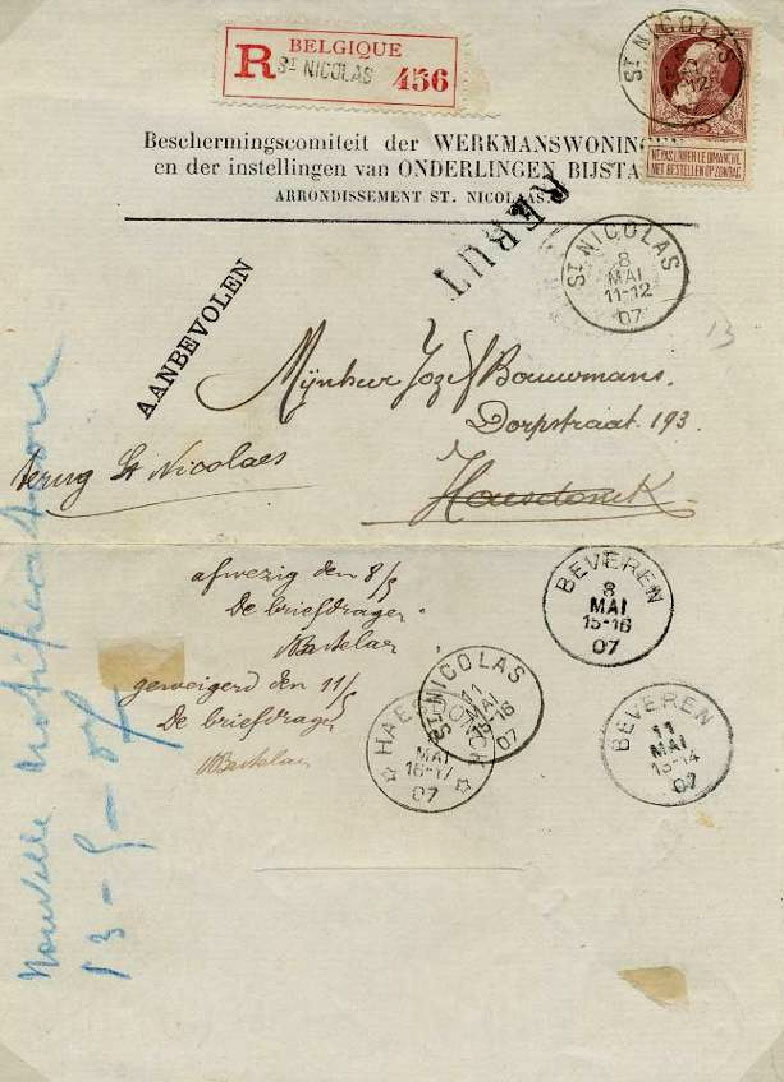 R BELGIQUE
ST NICOLAS 456
ST NICOLAS
Beschermingscomiteit der WERKMANSWONIN
en der instellingen van ONDERLINGEN BIJSTA
ARRONDISSEMENT ST. NICOLAAS.
NE PAS LIVRER LE DIMANCHE
NIET BESTELLEN OP ZONDAG
REBUT
ST NICOLAS
8
MAI
11-12
07
AANBEVOLEN
13
Mijnheer Jozef Bouwmans.
Dorpstraat 193.
terug St Nicolaes
Haesdonck
afwezig den 8/5
De briefdrager
geweigerd den 11/5
De briefdrager
BEVEREN
8
MAI
15-16
07
ST NICOLAS
11
MAI
07
HAESDONCK
MAI
16-17
07
BEVEREN
11
MAI
13-14
07
Nouvelle notification
13-5-07